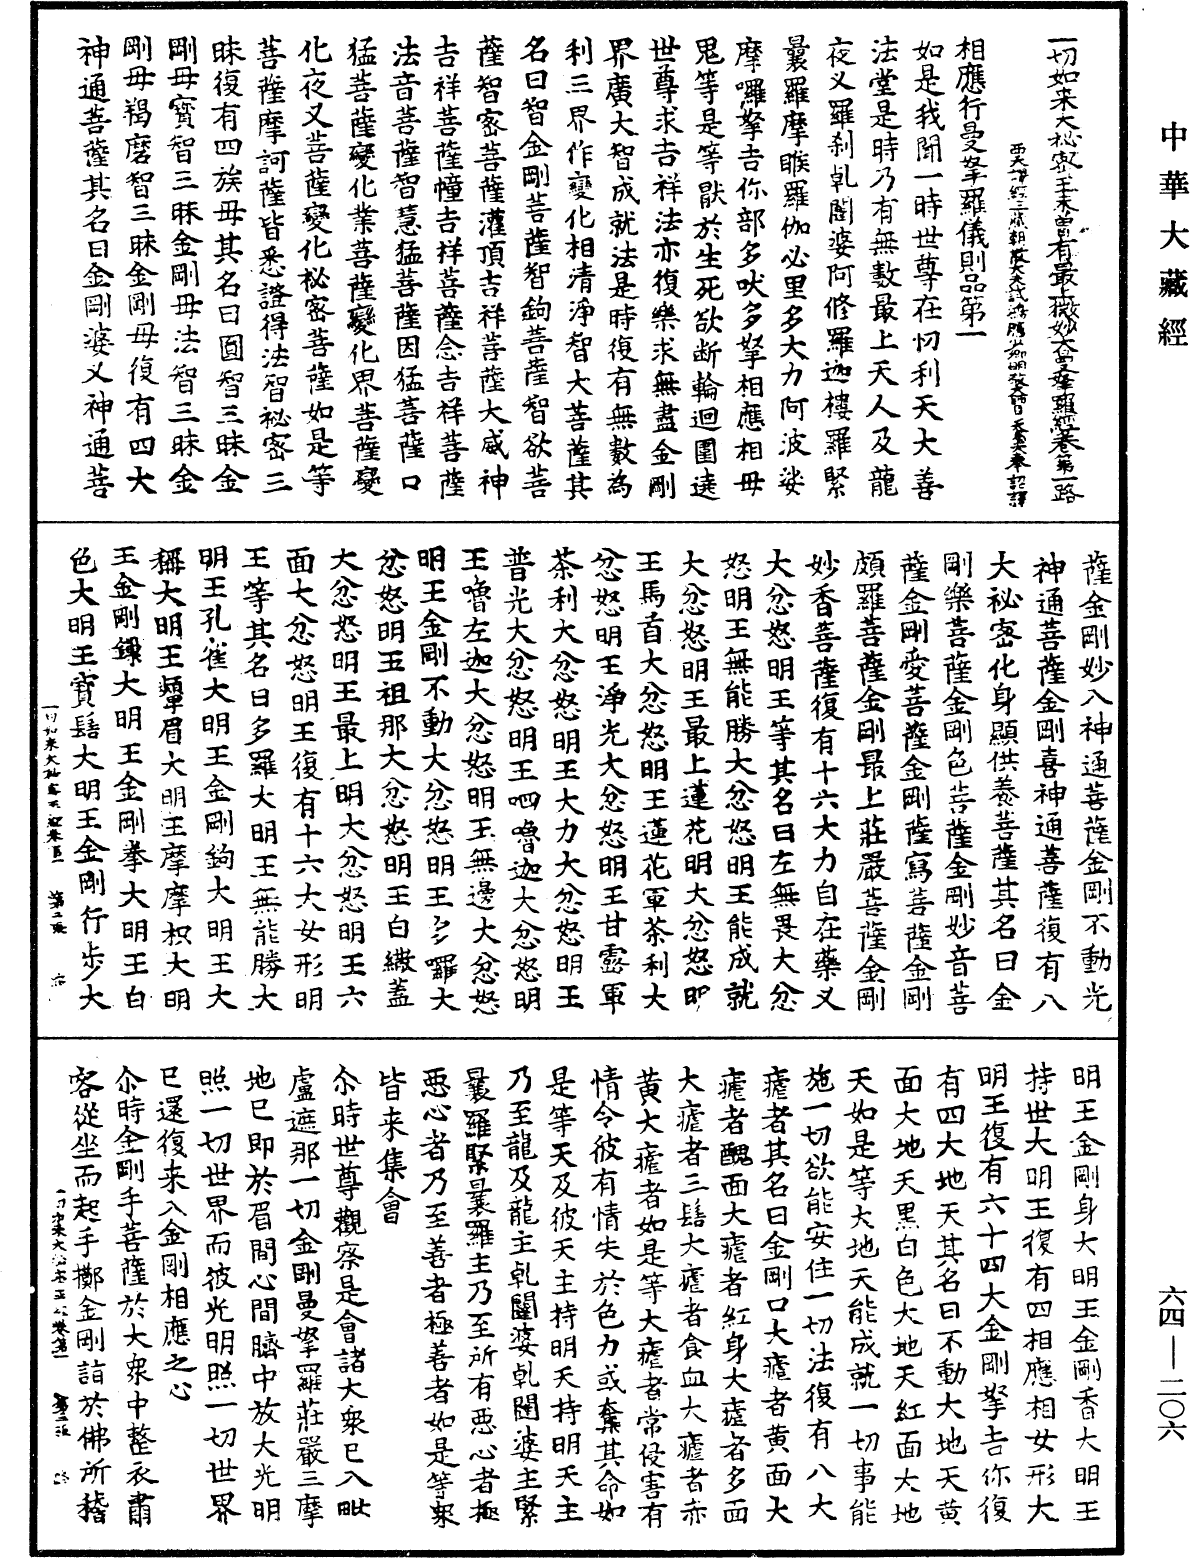 中華大藏經
一切如来大秘密王未曽有最上微妙大曼拏羅經卷第一 路
西天譯經三藏朝散大夫試鴻臚少卿明教大師臣天息災奉 詔譯
相應行曼拏羅儀則品第一
如是我聞一時世尊在忉利天大善
法堂是時乃有無數最上天人及龍
夜叉羅刹乹闥婆阿修羅迦樓羅緊
曩羅摩睺羅伽必里多大力阿波娑
摩囉拏吉你部多吠多拏相應相母
鬼等是等猒於生死欲断輪迴圍遶
世尊求吉祥法亦復樂求無盡金剛
界廣大智成就法是時復有無數為
利三界作變化相清淨智大菩薩其
名曰智金剛菩薩智鉤菩薩智欲菩
薩智密菩薩灌頂吉祥菩薩大威神
吉祥菩薩幢吉祥菩薩念吉祥菩薩
法音菩薩智慧猛菩薩因猛菩薩口
猛菩薩變化業菩薩變化界菩薩變
化夜叉菩薩變化秘密菩薩如是等
菩薩摩訶薩皆悉證得法智秘密三
昧復有四族母其名曰圓智三昧金
剛母寶智三昧金剛母法智三昧金
剛母羯磨智三昧金剛母復有四大
神通菩薩其名曰金剛婆叉神通菩
薩金剛妙入神通菩薩金剛不動光
神通菩薩金剛喜神通菩薩復有八
大祕密化身顯供養菩薩其名曰金
剛樂菩薩金剛色菩薩金剛妙音菩
薩金剛愛菩薩金剛薩寫菩薩金剛
頗羅菩薩金剛最上莊嚴菩薩金剛
妙香菩薩復有十六大力自在藥叉
大忿怒明王等其名曰左無畏大忿
怒明王無能勝大忿怒明王能成就
大忿怒明王最上蓮花明大忿怒明
王馬首大忿怒明王蓮花軍茶利大
忿怒明王淨光大忿怒明王甘露軍
茶利大忿怒明王大力大忿怒明王
普光大忿怒明王呬嚕迦大忿怒明
王嚕左迦大忿怒明王無邊大忿怒
明王金剛不動大忿怒明王多囉大
忿怒明王祖那大忿怒明王白繖蓋
大忿怒明王最上明大忿怒明王六
面大忿怒明王復有十六大女形明
王等其名曰多羅大明王無能勝大
明王孔雀大明王金剛鉤大明王大
稱大明王顰眉大明王摩摩枳大明
王金剛鏁大明王金剛拳大明王白
色大明王寶髻大明王金剛行步大
明王金剛身大明王金剛香大明王
持世大明王復有四相應相女形大
明王復有六十四大金剛拏吉你復
有四大地天其名曰不動大地天黄
面大地天黒白色大地天紅面大地
天如是等大地天能成就一切事能
施一切欲能安住一切法復有八大
瘧者其名曰金剛口大瘧者黄面大
瘧者醜面大瘧者紅身大瘧者多面
大瘧者三髻大瘧者食血大瘧者赤
黄大瘧者如是等大瘧者常侵害有
情令彼有情失於色力或奪其命如
是等天及彼天主持明天持明天主
乃至龍及龍主乹闥婆乹闥婆主緊
曩羅緊曩羅主乃至所有惡心者極
惡心者乃至善者極善者如是等衆
皆来集會
尒時世尊觀察是會諸大衆已入毗
盧遮那一切金剛曼拏羅莊嚴三摩
地已即於眉間心間臍中放大光明
照一切世界而彼光明照一切世界
已還復来入金剛相應之心
尒時金剛手菩薩於大衆中整衣肅
容從坐而起手擲金剛詣於佛所稽
六四—二〇六